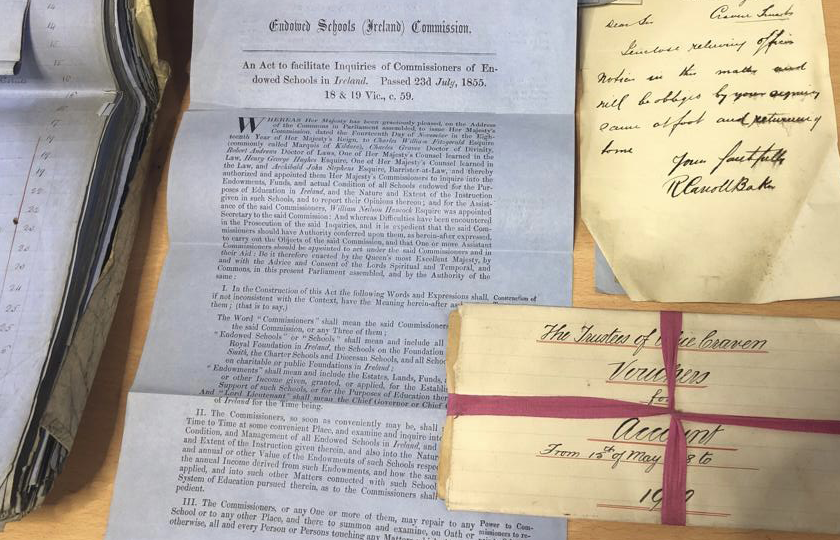 Endowed Schools (Ireland) Commission.
An Act to facilitate Inquiries of Commissioners of En-
dowed Schools in Ireland. Passed 23d July, 1855.
18 & 19 Vic., c. 59.
WHEREAS Her Majesty has been graciously pleased, on the Address
of the Commons in Parliament assembled, to issue Her Majesty's
Commission, dated the Fourteenth Day of November in the Eigh-
teenth Year of Her Majesty's Reign, to Charles William Fitzgerald Esquire
(commonly called Marquis of Kildare), Charles Graves Doctor of Divinity,
Robert Andrews Doctor of Laws, One of Her Majesty's Counsel learned in the
Law, Henry George Hughes Esquire, One of Her Majesty's Counsel learned in
the Law, and Archibald John Stephens Esquire, Barrister-at-Law, and thereby
authorized and appointed them Her Majesty's Commissioners to inquire into the
Endowments, Funds, and actual Condition of all Schools endowed for the Pur-
poses of Education in Ireland, and the Nature and Extent of the Instruction
given in such Schools, and to report their Opinions thereon; and for the Assist-
ance of the said Commissioners, William Neilson Hancock Esquire was appointed
Secretary to the said Commission: And whereas Difficulties have been encountered
in the Prosecution of the said Inquiries, and it is expedient that the said Com-
missioners should have Authority conferred upon them, as herein-after expressed,
to carry out the Objects of the said Commission, and that One or more Assistant
Commissioners should be appointed to act under the said Commissioners and in
their Aid: Be it therefore enacted by the Queen's most Excellent Majesty, by
and with the Advice and Consent of the Lords Spiritual and Temporal, and
Commons, in this present Parliament assembled, and by the Authority of the
same:
I. In the Construction of this Act the following Words and Expressions shall, Construction of
if not inconsistent with the Context, have the Meaning herein-after
them; (that is to say,)
The Word "Commissioners" shall mean the said Commissioners
the said Commission, or any Three of them;
"Endowed Schools" or "Schools" shall mean and include all
Royal Foundation in Ireland, the Schools on the Foundation
Smith, the Charter Schools and Diocesan Schools, and all Schools
on charitable or public Foundations in Ireland;
"Endowments" shall mean and include the Estates, Lands, Funds,
or other Income given, granted, or applied, for the
Support of such Schools, or for the Purposes of Education
And "Lord Lieutenant" shall mean the Chief Governor or Chief
of Ireland for the Time being.
II. The Commissioners, so soon as conveniently may be, shall
Time to Time at some convenient Place, and examine and inquire into
Condition, and Management of all Endowed Schools in Ireland, and
and Extent of the Instruction given therein, and also into the
and annual or other Value of the Endowments of such Schools
the annual Income derived from such Endowments, and how the same
applied, and into such other Matters connected with such School
System of Education pursued therein, as to the Commissioners shall
pedient.
III. The Commissioners, or any One or more of them, may repair to any Power to Com-
School or to any other Place, and there to summon and examine, on Oath or missioners to re-
otherwise, all and every Person or Persons touching any
Dear Sir Craven Trusts
I enclose relieving officer
Notice in this matter and
will be obliged by your signing
same at foot and returning
to me
Yours faithfully
R Carroll Baker
The Trustees of Craven
Vouchers
for
Account
From 15th of May to